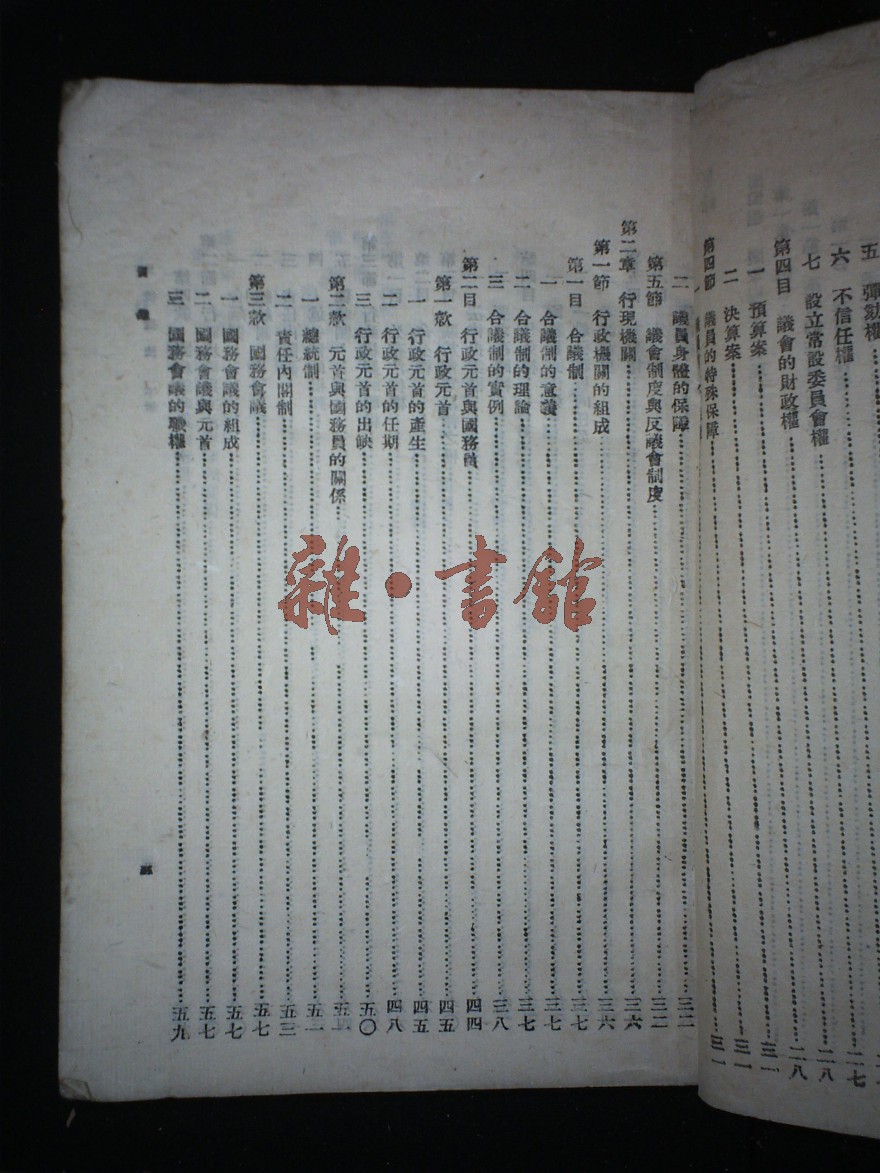 五 彈劾權
六 不信任權……二七
七 設立常設委員會權……二八
第四目 議會的財政權……二八
一 預算案……三一
二 決算案……三一
第四節 議員的特殊保障……三一
二 議員身體的保障……三二
第五節 議會制度與反議會制度……三二
第二章 行現機關……三六
第一節 行政機關的組成……三六
第一目 合議制……三七
一 合議制的意義……三七
二 合議制的理論……三七
三 合議制的實例……三八
第二目 行政元首與國務員……四四
第一款 行政元首……四五
一 行政元首的產生……四五
二 行政元首的任期……四八
三 行政元首的出缺……五〇
第二款 元首與國務員的關係……五一
一 總統制……五一
二 責任內閣制……五三
第三款 國務會議……五七
一 國務會議的組成……五七
二 國務會議與元首……五七
三 國務會議的職權……五九
目 錄
四
雜·書館